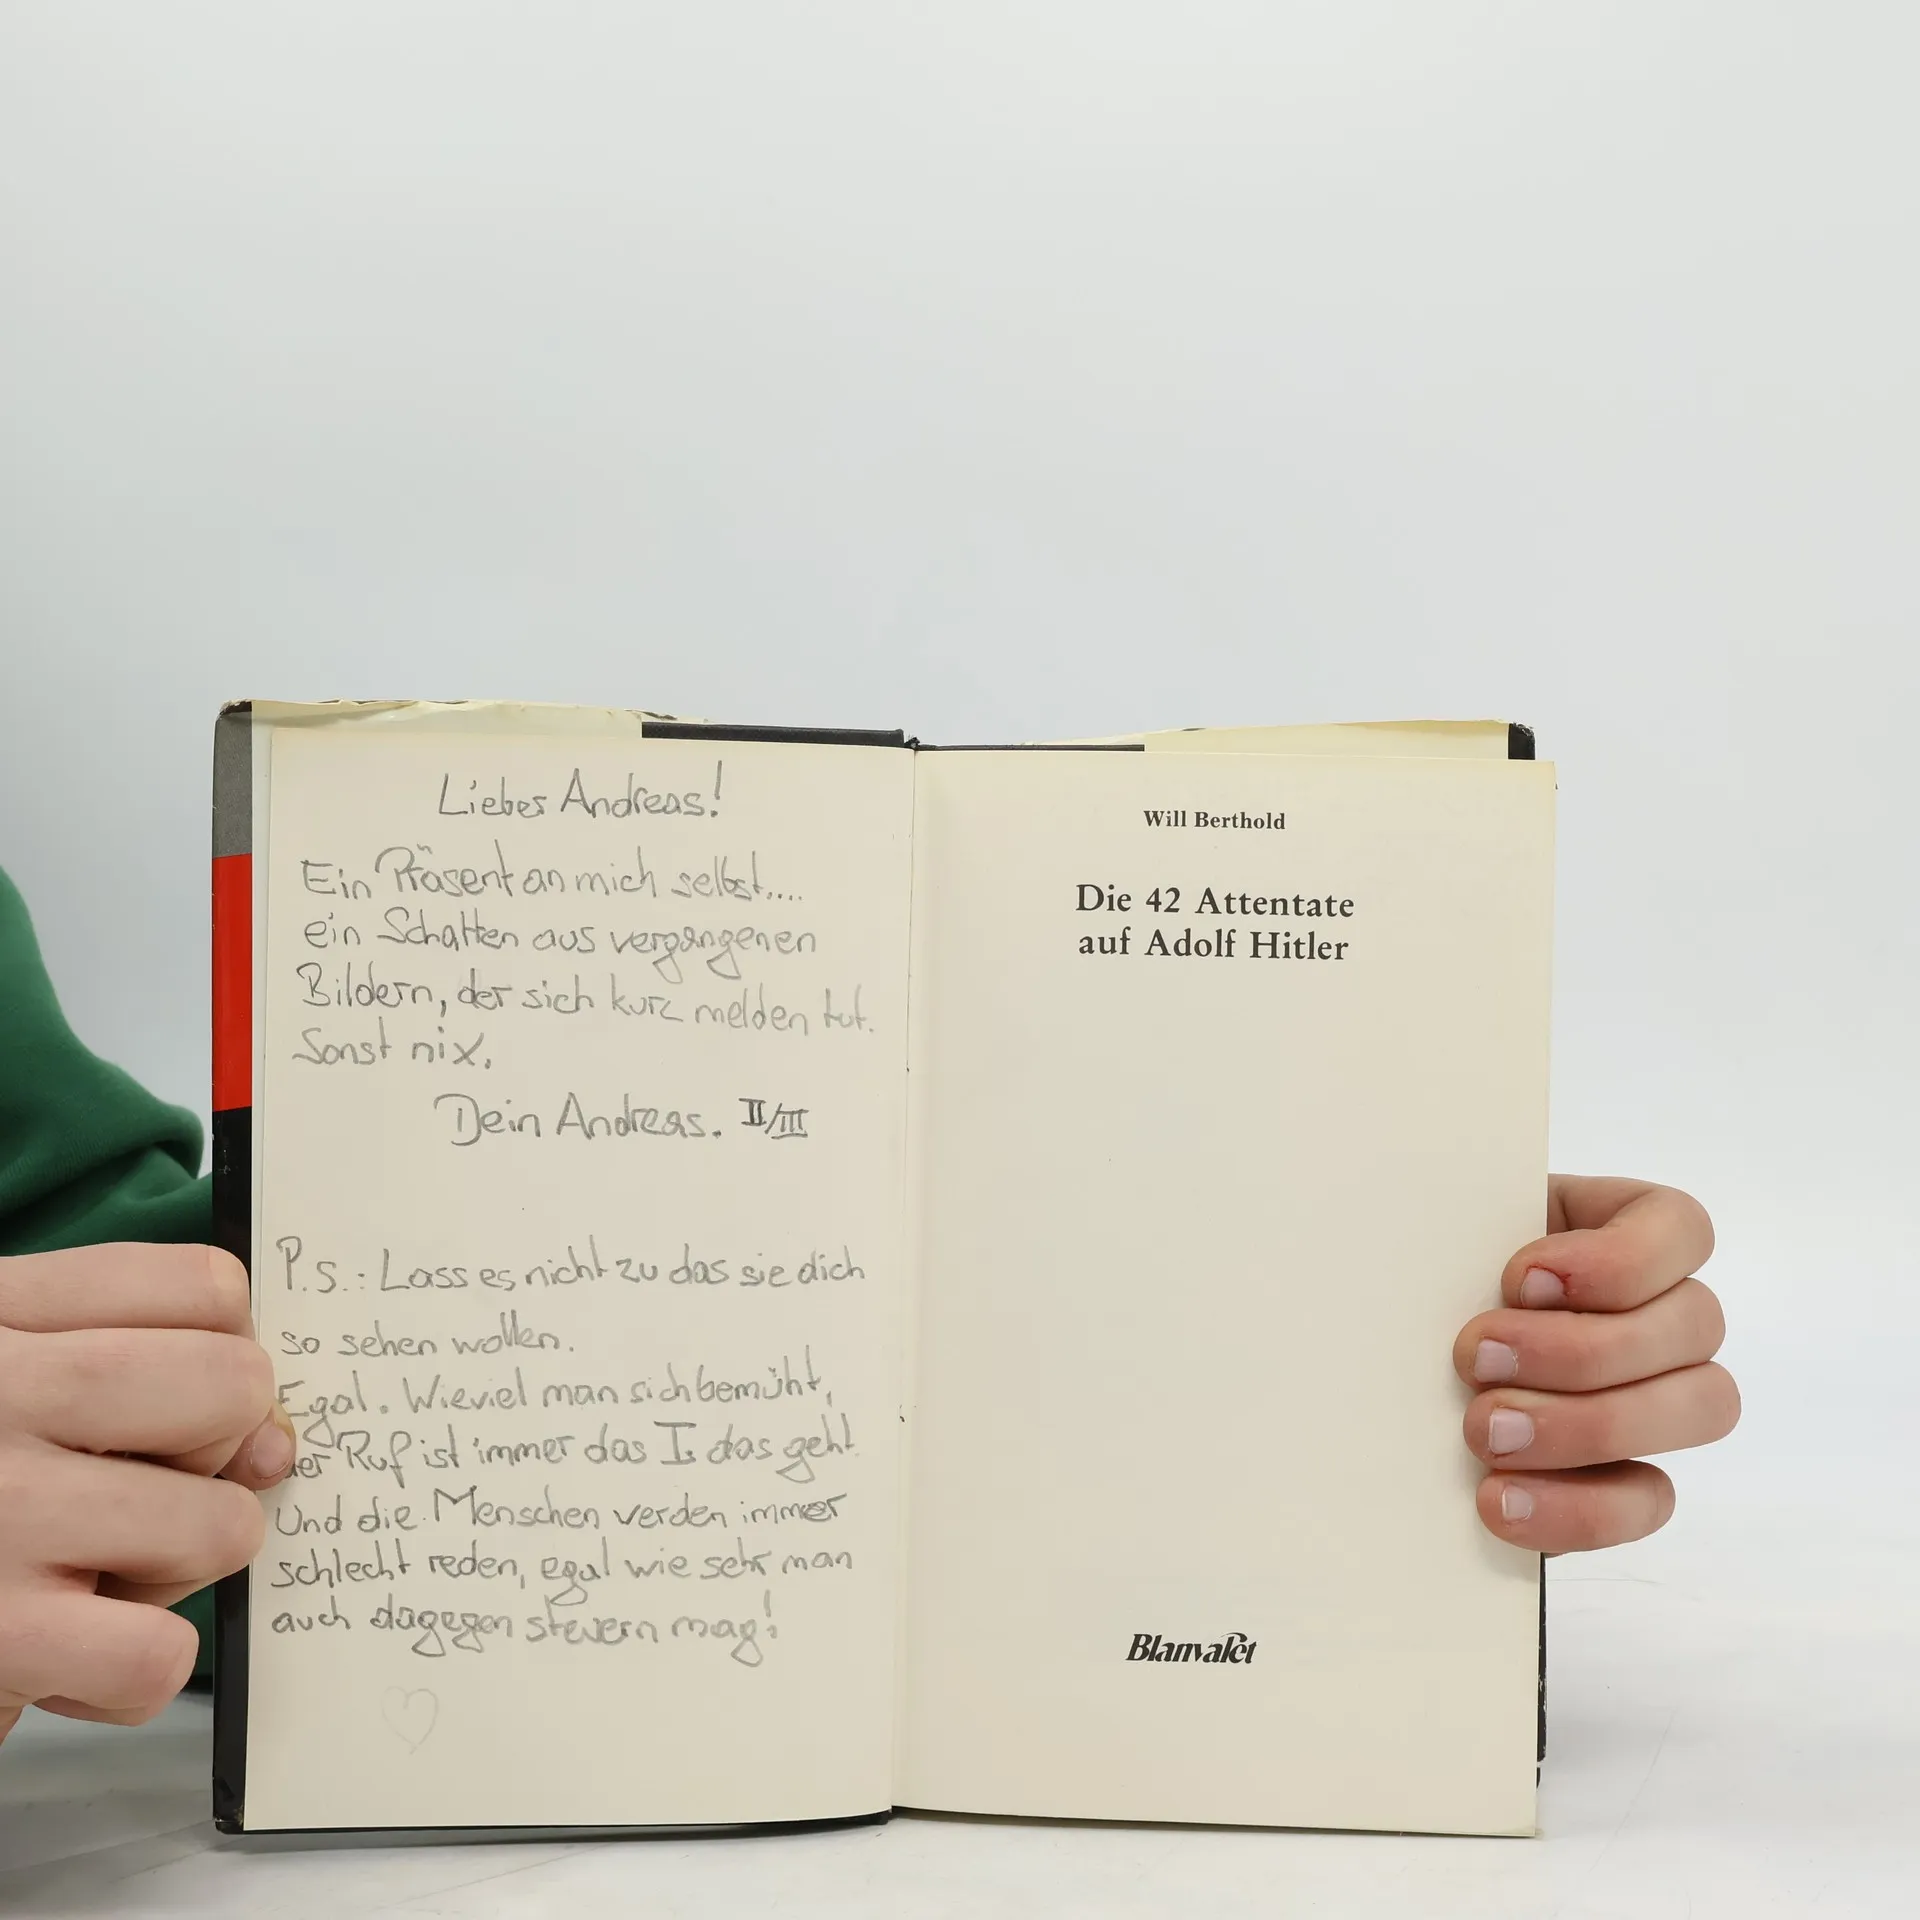 Lieber Andreas!
Ein Präsent an mich selbst....
ein Schatten aus vergangenen
Bildern, der sich kurz melden tut.
Sonst nix.
Dein Andreas. II/III
P.S.: Lass es nicht zu das sie dich
so sehen wollen.
Egal. Wieviel man sich bemüht,
der Ruf ist immer das I. das geht.
Und die Menschen werden immer
schlecht reden, egal wie sehr man
auch dagegen steuern mag!
Will Berthold
Die 42 Attentate
auf Adolf Hitler
Blanvalet